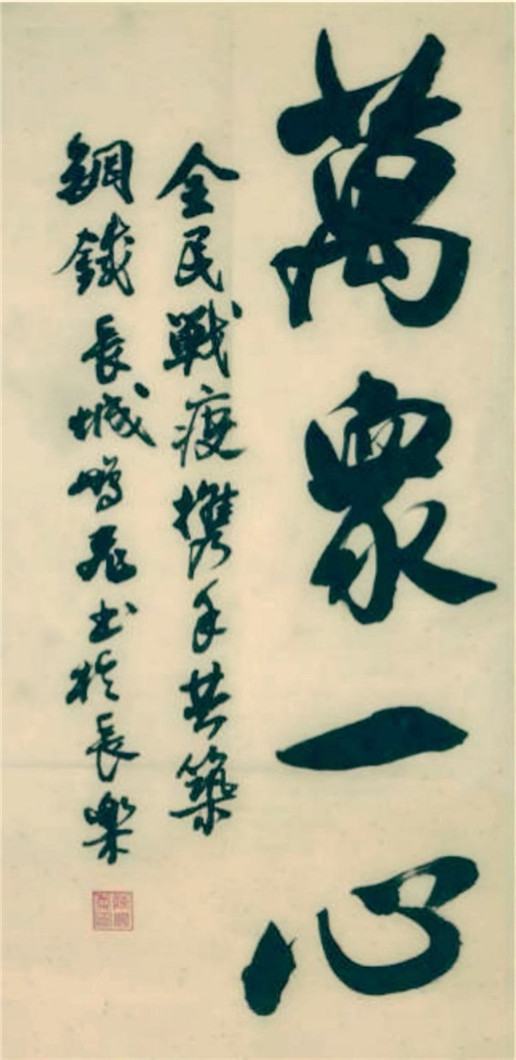 萬眾一心
全民戰疫攜手共築
鋼鐵長城鵬飛書於長樂